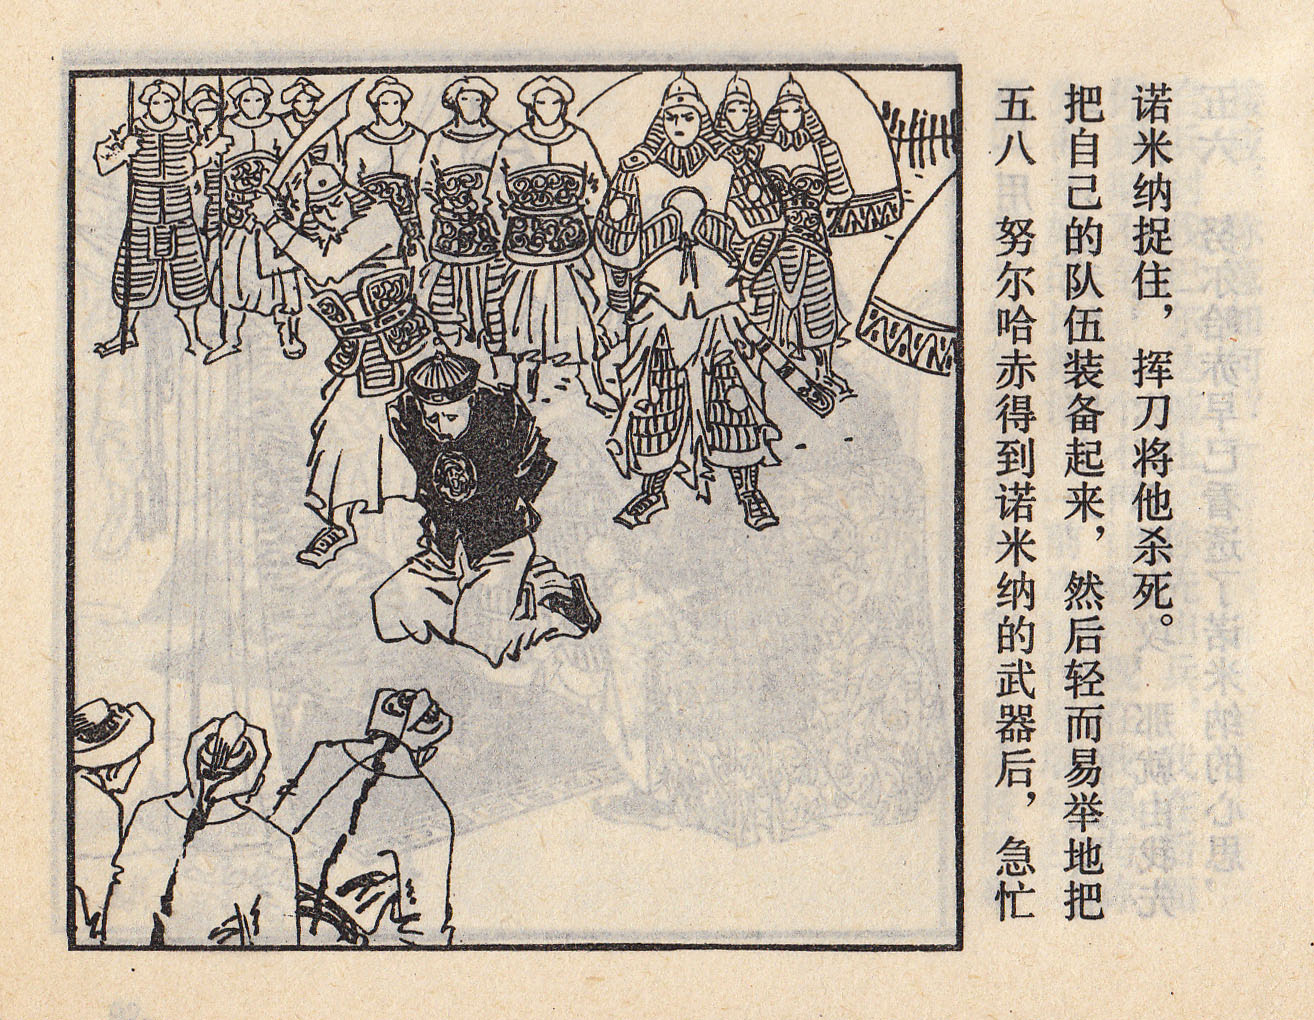 五八 努尔哈赤得到诺米纳的武器后，急忙
把自己的队伍装备起来，然后轻而易举地把
诺米纳捉住，挥刀将他杀死。